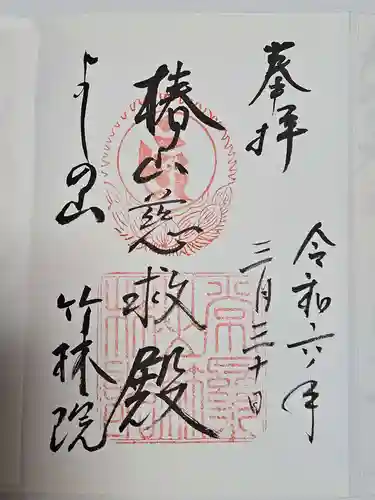 奉拝
令和六年
三月三十日
椿山慈救殿
よしの山
竹林院